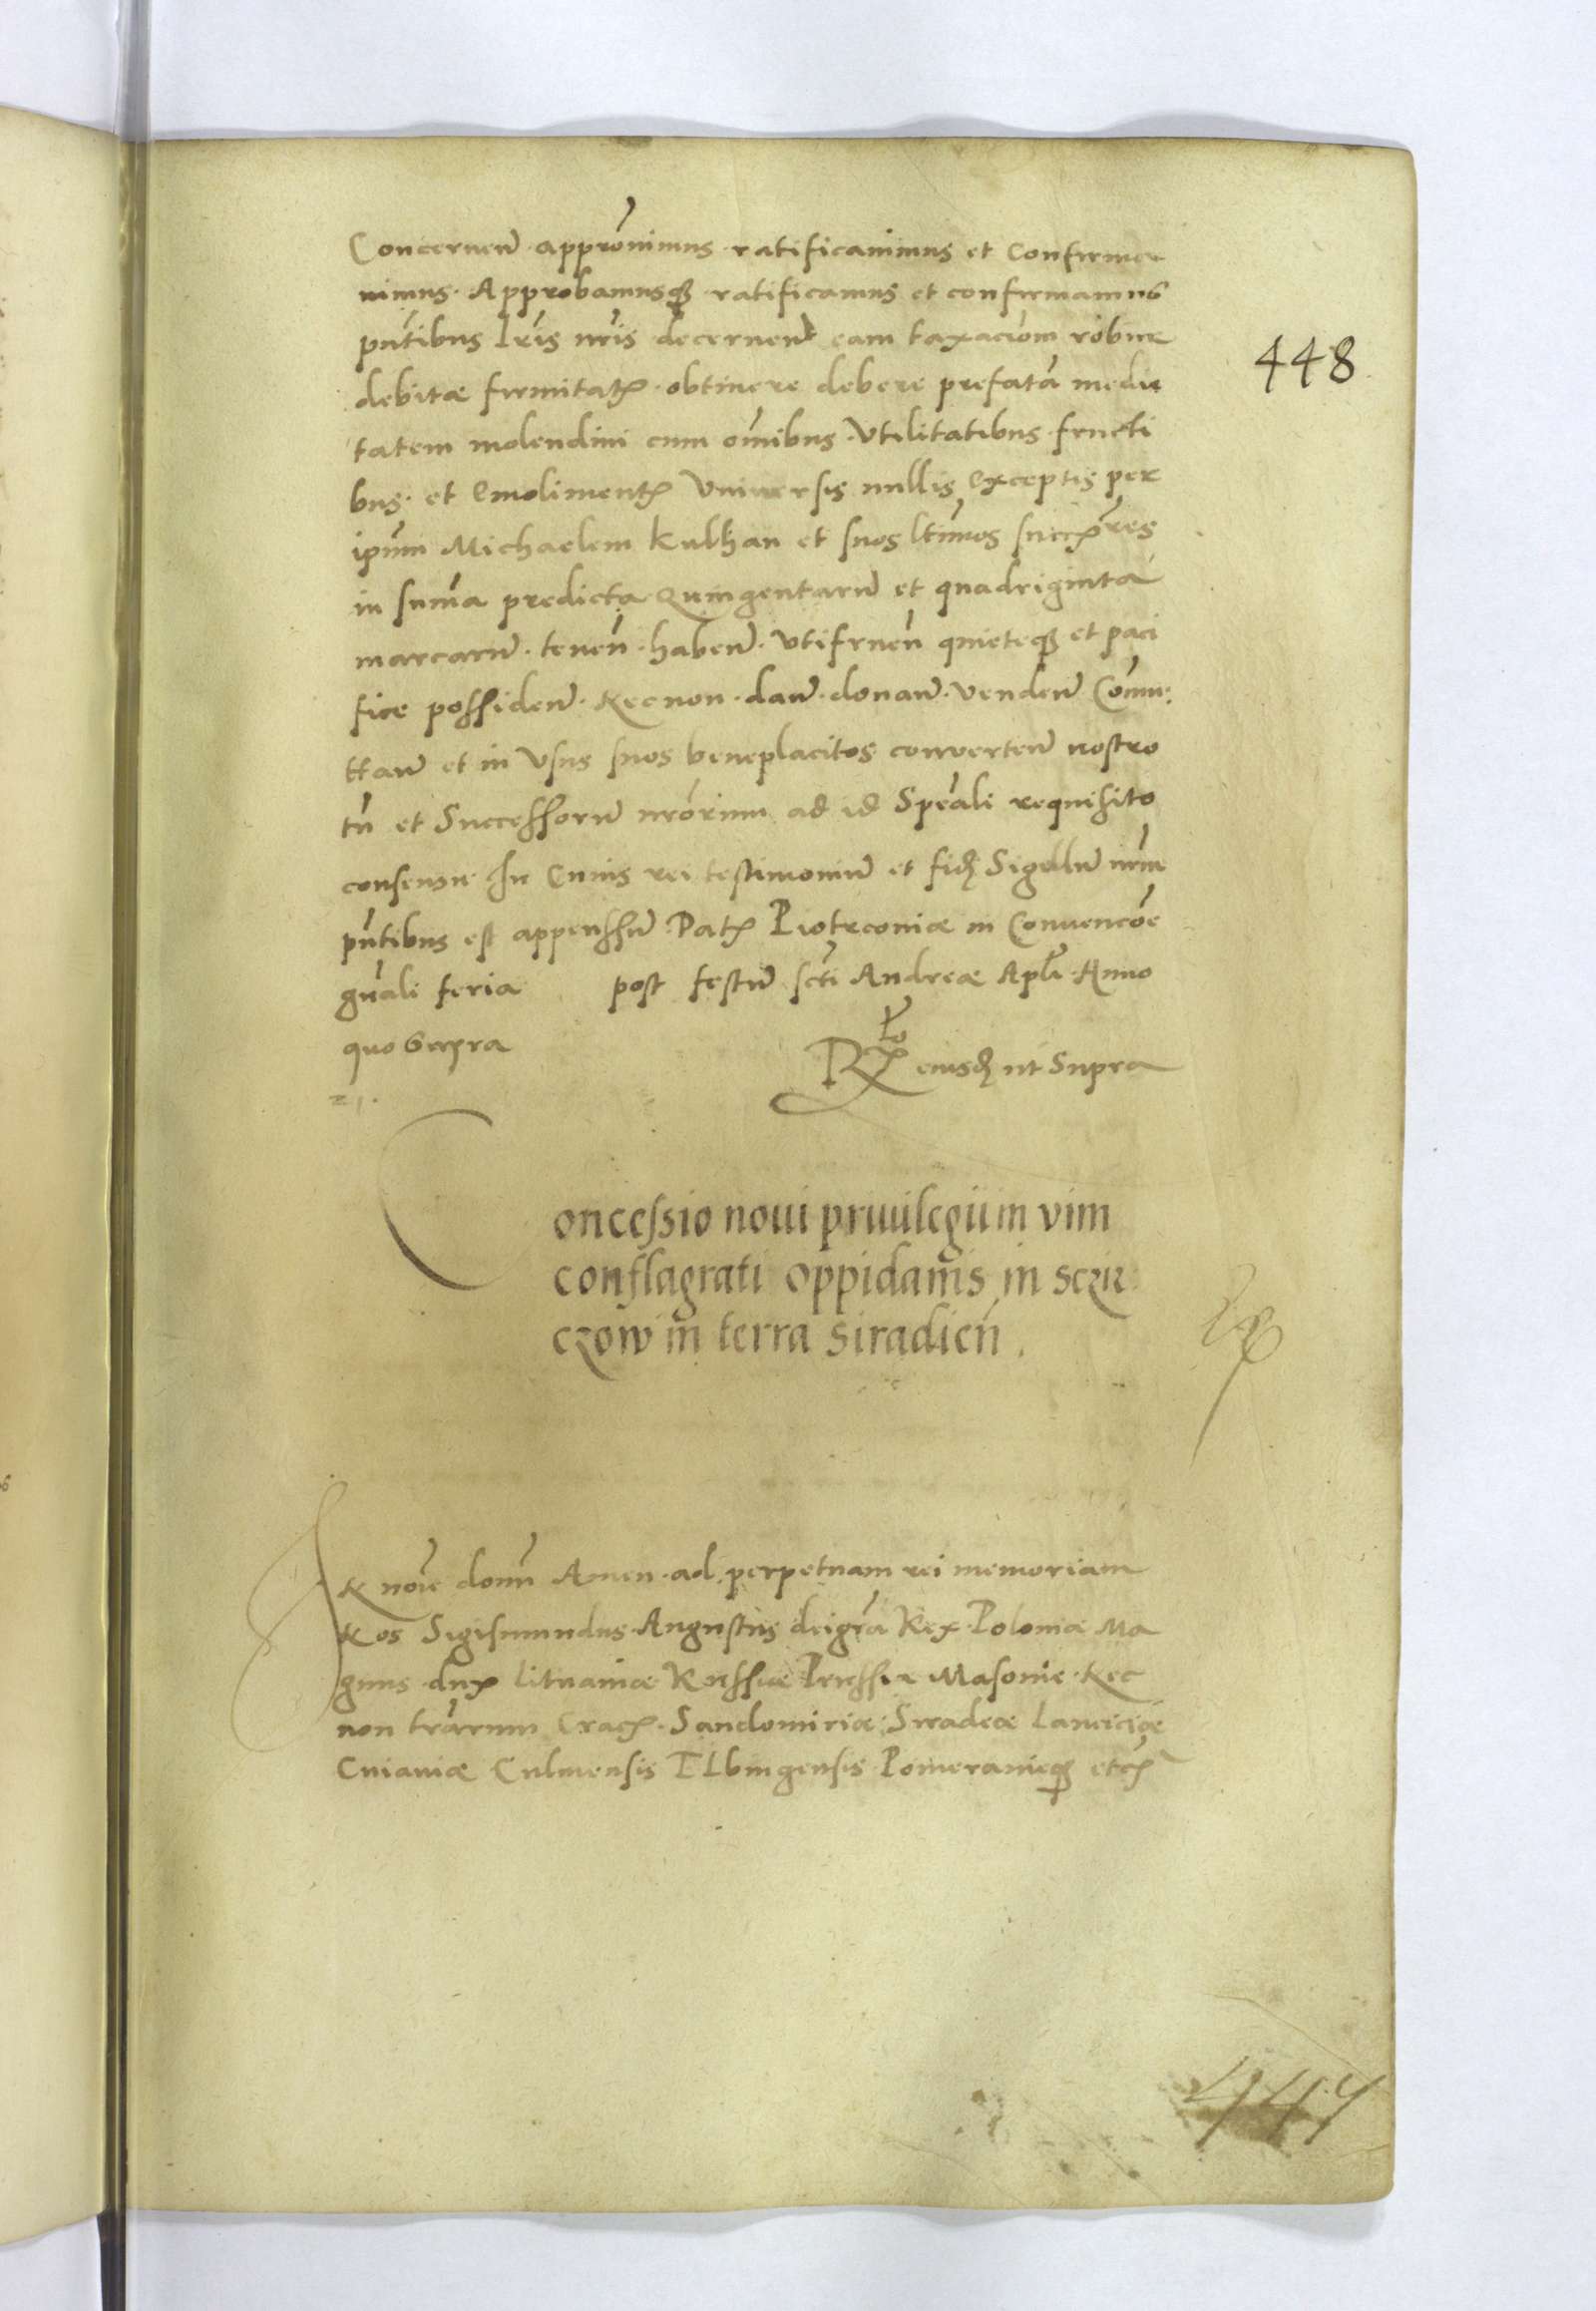 Concernen̄ approūimus ratificauimus et Confirma
uimus. Approbamusq₃ ratificamus et confirmamus
pn̄tibus lr̄is nr̄is decernen̄t eam taxacōem robur
debitæ firmitatꝫ obtinere debere prefatā medie
tatem molendini cum om̄ibus Vtilitatibus fructi
bus et Emolimentꝫ Vniuersis nullis Exceptis per
ip̄um Michaelem Kulhan et suos lt̄imos succꝫr̄es
in sum̄a predicta Quingentarū et quadriginta
marcarū. tenen̄. haben̄. Vtifruen̄ quieteq₃ et paci
fice possiden̄. Necnon. dan̄. donan̄. Venden̄ Com̄u:
ttan̄ et in Vsus suos beneplacitos conuerten̄ nostro
tn̄ et Successorū nrōrum ad id Spēali requisito
consensu In Cuius rei testimoniū et fidꝫ Sigillū nr̄m
pn̄tibus est appenssū Datꝫ Piotrconiæ in Conuencōe
gn̄ali feria post festū sct̄i Andreæ Apl̄i Anno
quo Supra
Rꝫto eiusdꝫ ut Supra
Concessio noui priuilegii in vim
conflagrati oppidan̄is in sczir
czow in terra siradien̄.
IN noīe domī Amen. ad perpetuam rei memoriam
Nos Sigismundus Augustus dei gr̄a Rex Poloniæ Ma
gnus dux lituaniæ Russiæ Prussiæ Masoniæ Nec
non tr̄arum Cracꝫ. Sandomiriæ Siradeæ Lanciciæ
Cuiauiæ Culmensis ELbingensis Pomeranieq₃ etcꝫ
448
447